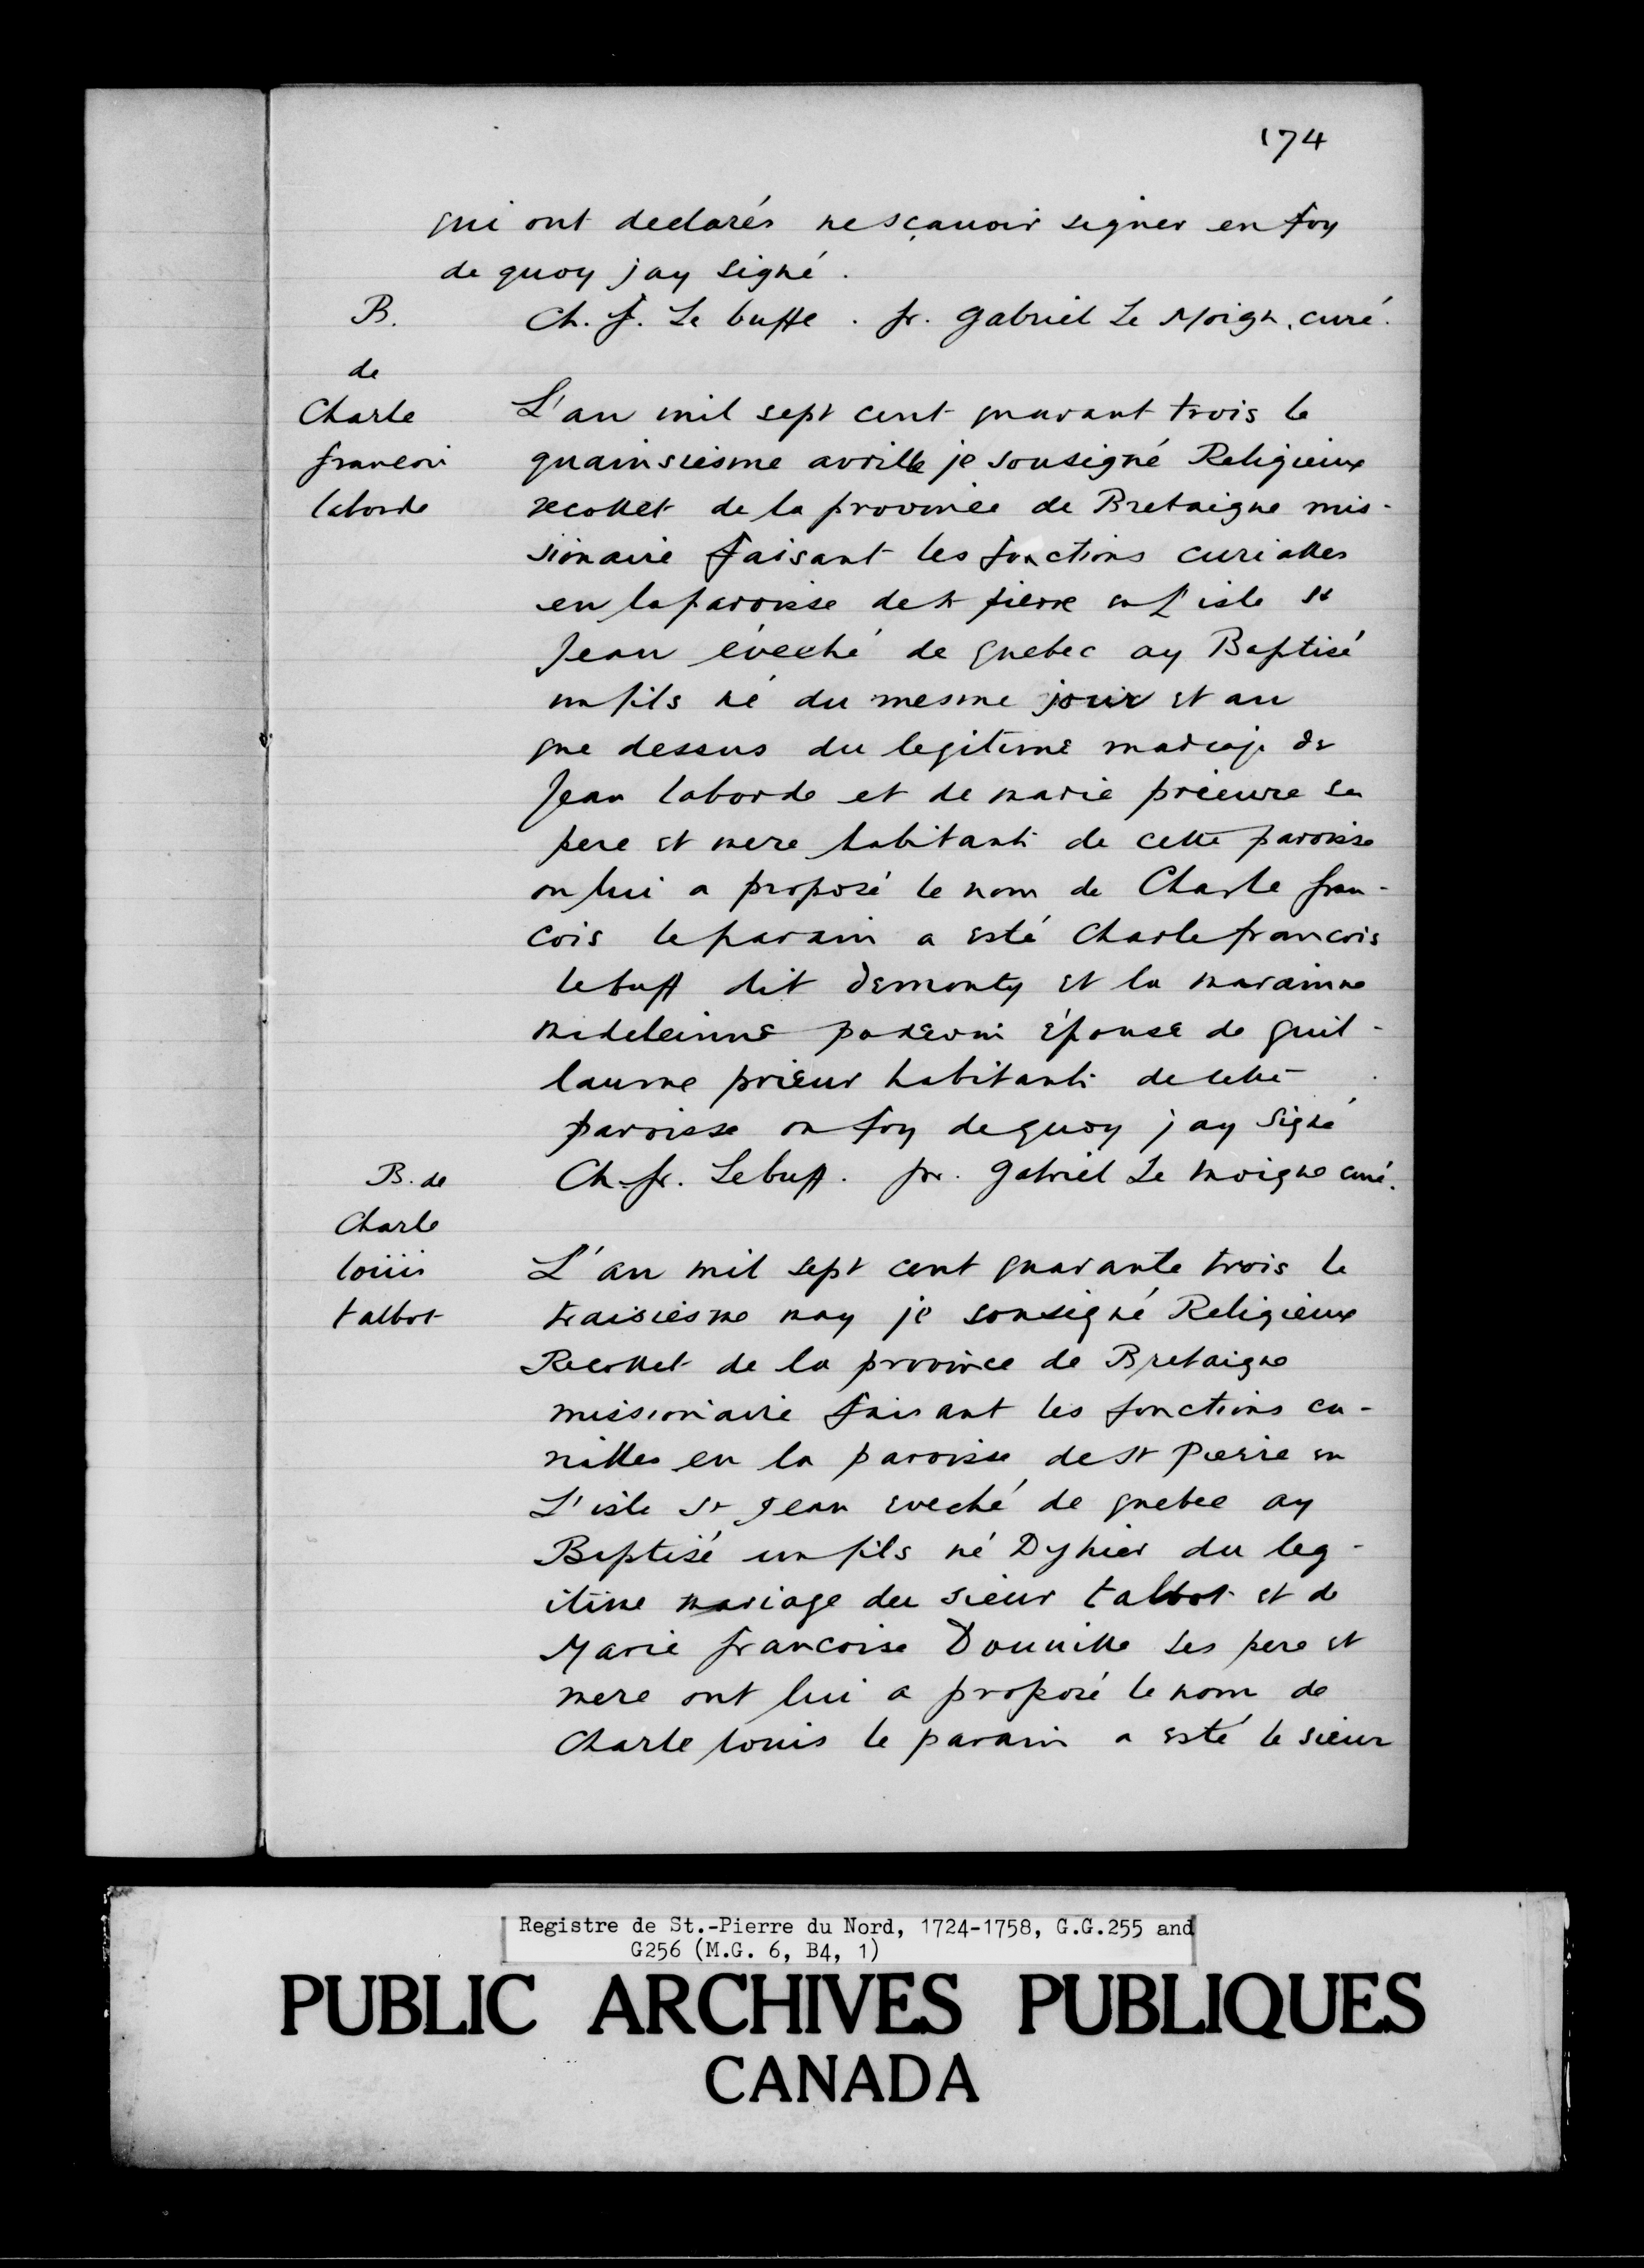 174
qui ont declarés ne sçauoir signer en foy
de quoy jay signé.
B.
de
Charle
francois
laborde
Ch. f. Le buffe. fr. gabriel Le Moign. curé.
L'an mil sept cent quarant trois le
quainsiesme avrille je sousigné Religieux
recollet de la province de Bretaigne mis-
sionaire faisant les fonctions curialles
en la paroisse de st pierre en l'isle st
Jean évéché de quebec ay Baptisé
un fils né du mesme jour et an
que dessus du legitime mariage de
Jean laborde et de marie prieure se
pere et mere habitants de cette paroisse
on lui a proposé le nom de Charle fran-
cois le parain a esté Charle francois
lebuff dit demonty et la marainne
madeleinne poderin épouse de guil-
laume prieur habitants de cette
paroisse en foy de quoy jay Signé
Ch. fr. Lebuff. fr. gabriel Le moigne curé.
B. de
Charle
loüis
talbot
L'an mil sept cent quarante trois le
traisiesme may je sousigné Religieux
Recollet de la province de Bretaigne
missionaire faisant les fonctions cu-
rialles en la paroisse de st Pierre en
L'isle st Jean eveché de quebec ay
Baptisé un fils né Dyhier du leg-
itime mariage du sieur talbot et de
Marie francoise Douuille ses pere et
mere ont lui a proposé le nom de
Charle louis le parain a esté le sieur
Registre de St.-Pierre du Nord, 1724-1758, G.G.255 and
G256 (M.G. 6, B4, 1)
PUBLIC ARCHIVES PUBLIQUES
CANADA